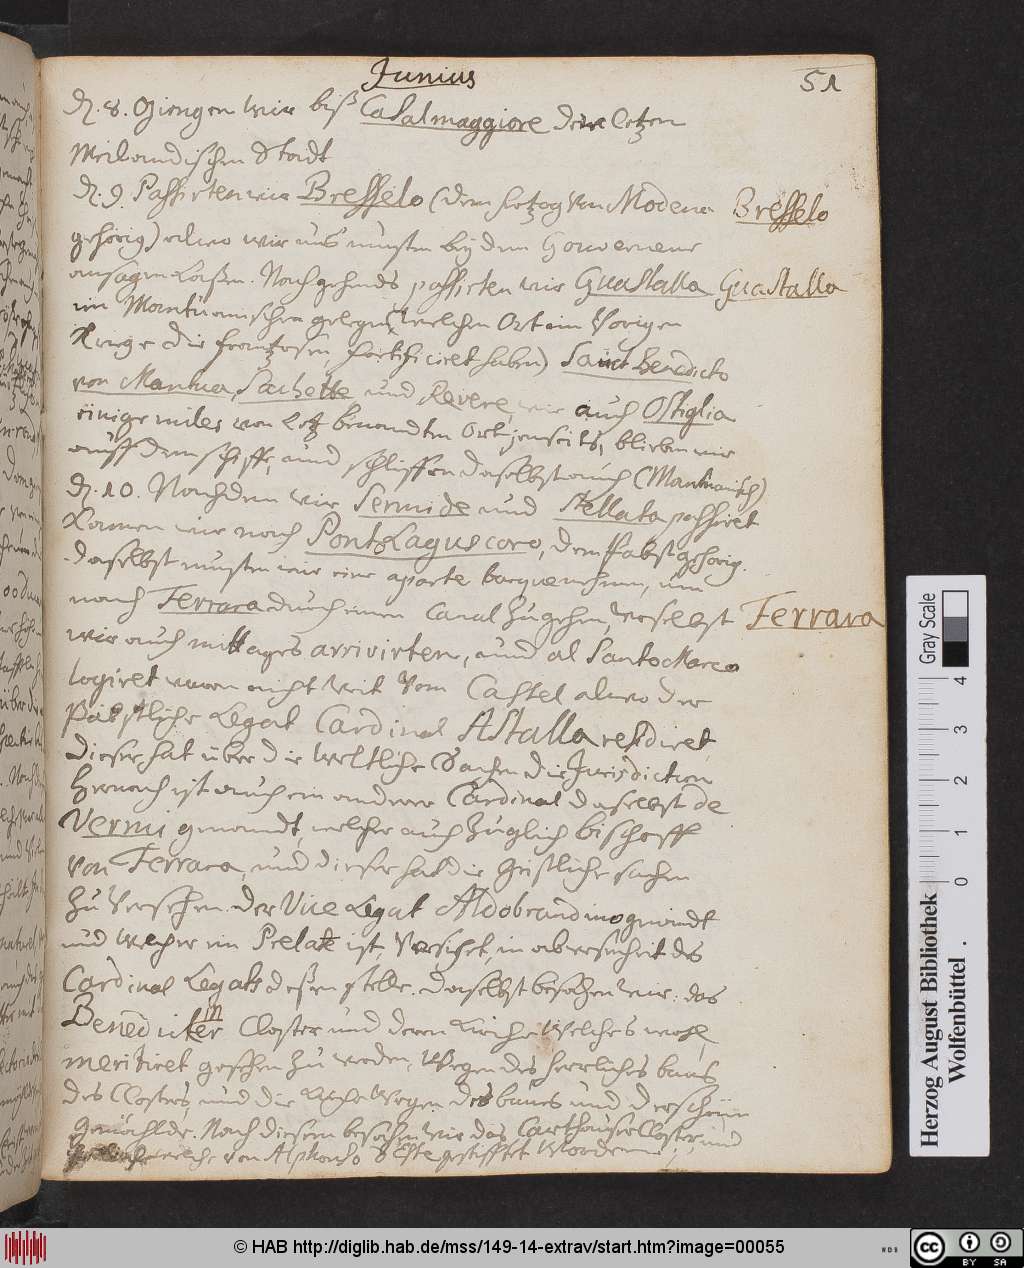 Junius
51
d. 8. Giengen wir biß Casalmaggiore der letzen
Meilandischen Stadt
d. 9. Passirten wir Bressello (dem Hertzog von Modena
Bressello
gehörig) alwo wir uns musten bey dem Gouverneur
ansagen laßen. Nachgehends passirten wir Guastalla
Guastalla
im Mantuanischen gelegen, (welchen Ort im Vorigen
Kriege die Frantzosen fortificiret haben) Sanct Benedicto
von Mantua, Sachette und Revere, wie auch Ostiglia
einige miles von letz benandten Ort jenseits, blieben wir
auff dem schiffe, und schlieffen daselbst auch (Mantuanisch)
d. 10. Nachdem wir Sermide und Stellata passiret
kamen wir nach Ponte Laguscoro, dem Pabst gehörig.
daselbst musten wir eine aparte barque nehmen, um
nach Ferrara durch einen Canal zu gehen, woselbst
Ferrara
wir auch mittages arrivirten, und al Santo Marco
logiret waren nicht weit vom Castel alwo der
Päbstliche Legat Cardinal Astalla residiret
dieser hat über die weltliche Sachen die Jurisdiction
Hernach ist auch ein anderer Cardinal daselbst de
Vermi genandt, welcher auch zuglich bischoff
von Ferrara, und dieser hat die geistliche sachen
zu Versehen. Der Vice Legat Aldobrandino genandt
und welcher ein Prelat ist, Versihet, in abwesenheit des
Cardinal Legats deßen stelle. Daselbst besahen wir: das
Benedicter in Closter und deren Kirche welches wohl
meritiret gesehen zu werden, Wegen des herrliches baues
des Closters, und die Kirche Wegen des baues und der schönen
Gemählde. Nach diesem besahen wir das Carthäuser Closter, und
welche von Alphonso d'Este gestifftet Worden
Gray Scale
4
3
2
1
0
Herzog August Bibliothek
Wolfenbüttel
© HAB http://diglib.hab.de/mss/149-14-extrav/start.htm?image=00055
WDB
CC BY SA